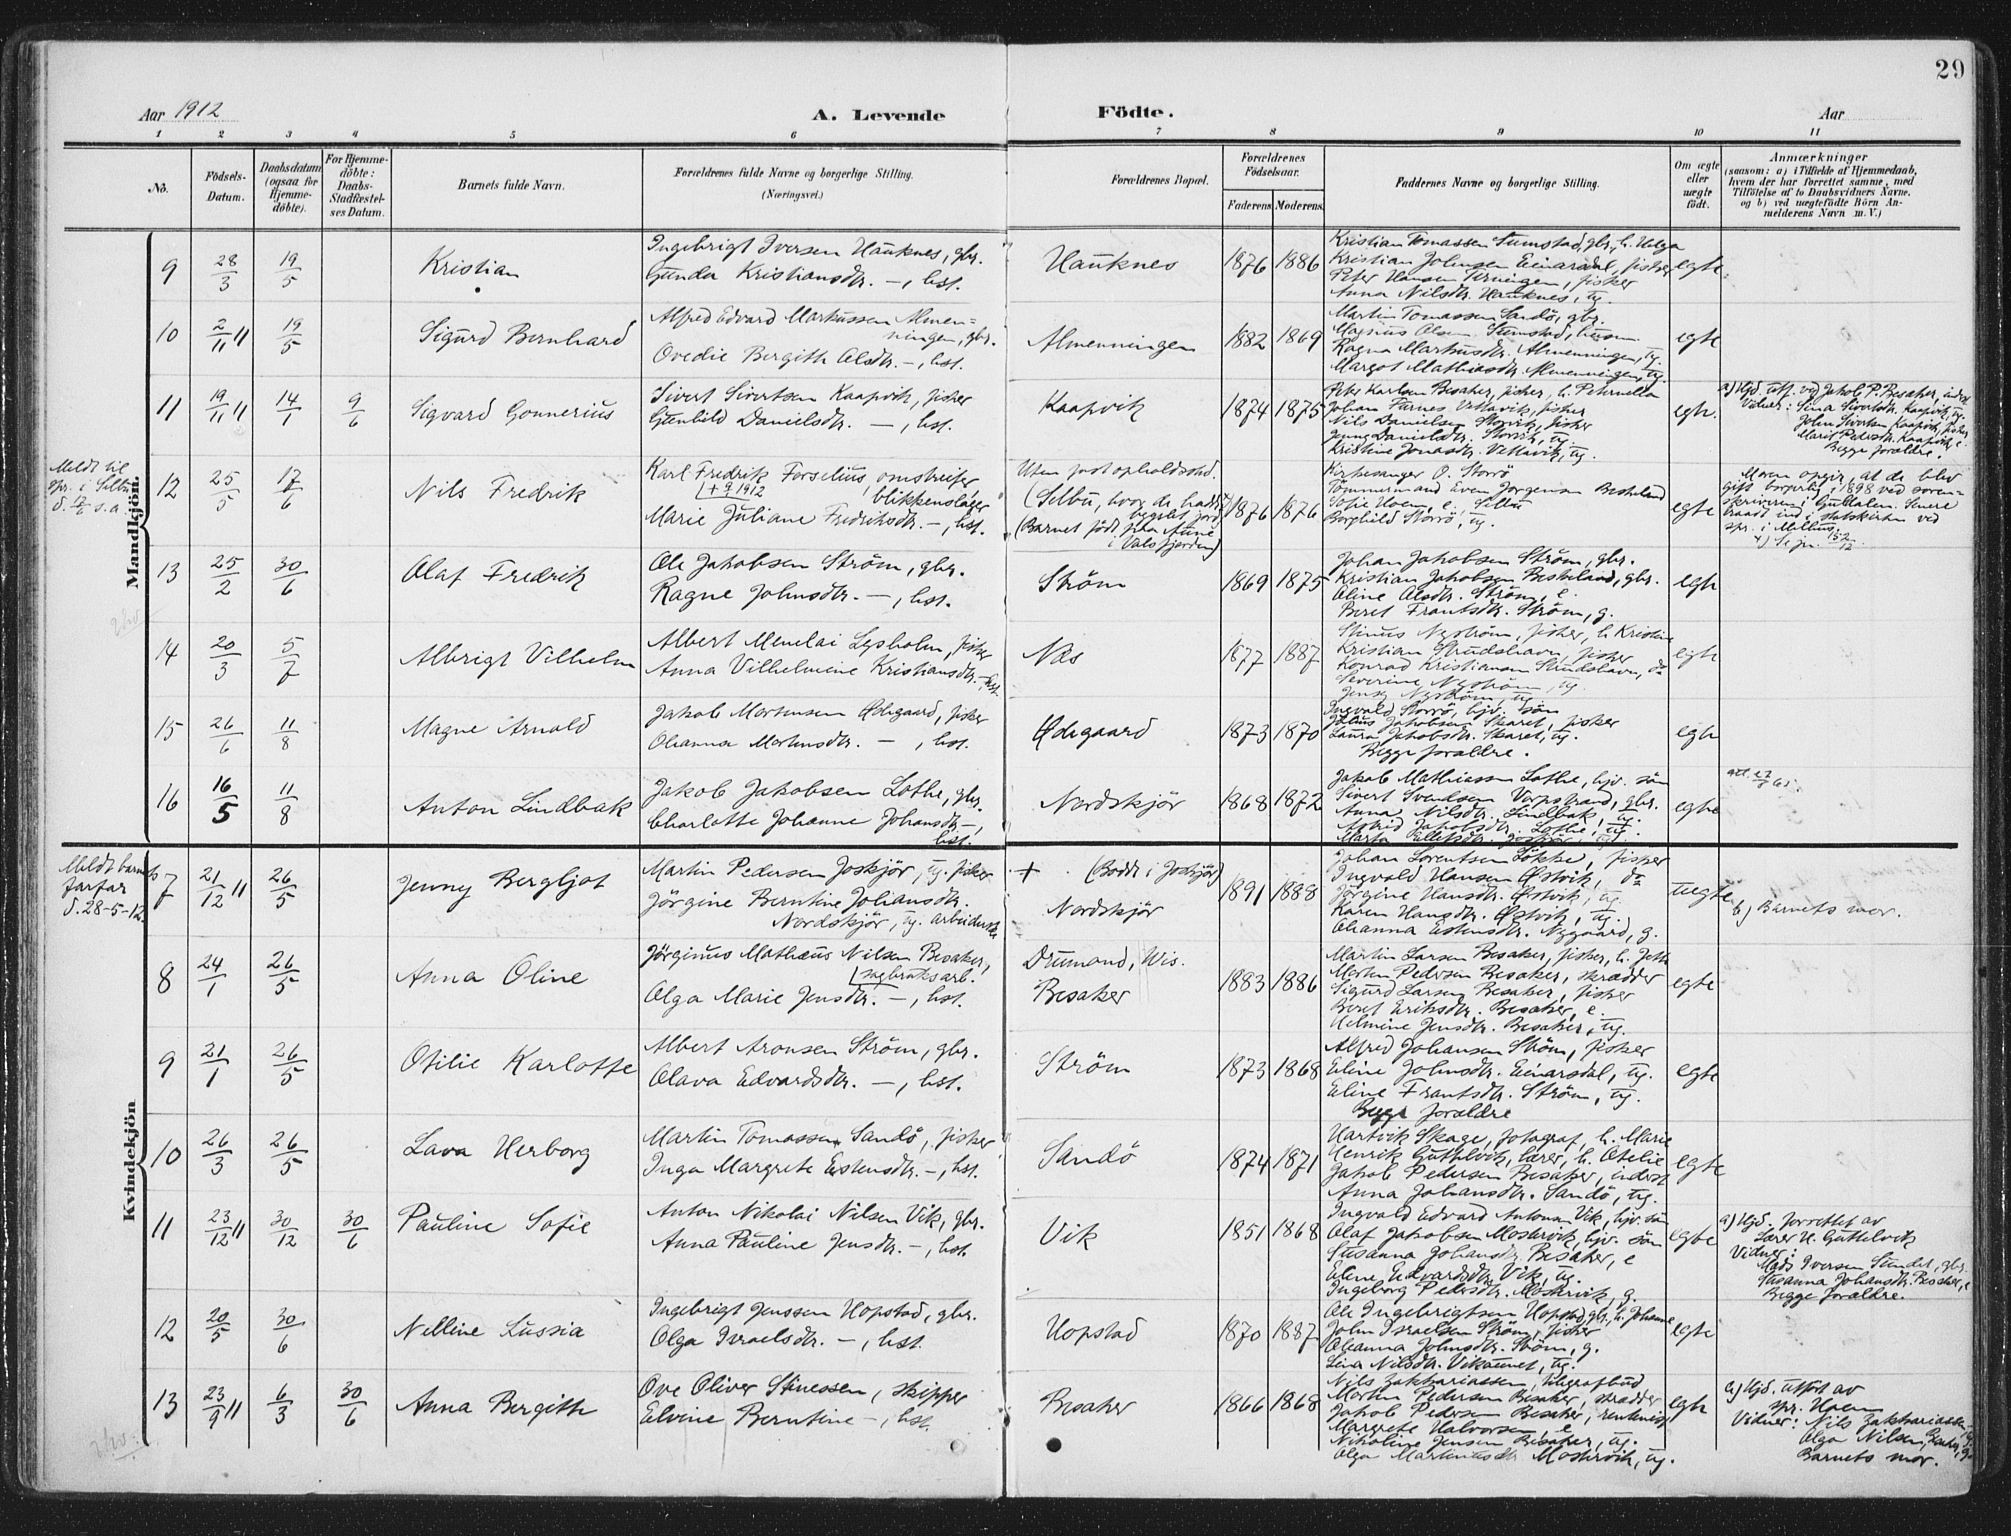 29
Aar 1912
A. Levende Födte.
Aar
1 2 3 4 5 6 7 8 9 10 11
No.
Födsels-
Datum.
Daabsdatum
(ogsaa for
Hjemme-
döbte).
For Hjemme-
döbte:
Daabs-
Stadfæstel-
ses Datum.
Barnets fulde Navn.
Forældrenes fulde Navne og borgerlige Stilling.
(Næringsvei.)
Forældrenes Bopæl.
Forældrenes
Födselsaar.
Faderens Moderens
Faddernes Navne og borgerlige Stilling.
Om ægte
eller
uægte
födt.
Anmærkninger
(saasom: a) i Tilfælde af Hjemmedaab,
hvem der har forrettet samme, med
Tilföielse af to Daabsvidners Navne.
og b) ved uægtefödte Börn An-
melderens Navn m. V.)
Mandkjön.
9 28/3 19/5 Kristian
Ingebrigt Iversen Hauknes, gbr.
Gunda Kristiansdtr. —, hst.
Hauknes 1876 1886
Kristian Tomassen Sumstad, gbr., h. Helga
Kristian Johnsen Einarsdal, fisker
Peter Hansen Terningen, fisker
Anna Nilsdtr. Hauknes, ug.
egte
10 2/11 11 19/5 Sigurd Bernhard
Alfred Edvard Markussen Almen-
ningen, gbr.
Ovedie Bergith Olsdtr. —, hst.
Almenningen 1882 1869
Martin Tomassen Sandö, gbr.
Magnus Olsen Sumstad, husm.
Ragna Markusdtr. Almenningen, ug.
Margot Mathiasdtr. Almenningen, ug.
egte
11 19/11 11 14/1 9/6 Sigvard Gonnerius
Sivert Sivertsen Kaapvik, fisker
Gunhild Danielsdtr. —, hst.
Kaapvik 1874 1875
Peter Karlsen Besaker, fisker, h. Peternella
Johan Furnes Vettavik, fisker
Nils Danielsen Storvik, fisker
Jenny Danielsdtr. Storvik, ug.
Kristine Jonasdtr. Vettavik, ug.
egte.
a) Hjd. utf. ved Jakob P. Besaker, inderst
Vidner: Sina Sivertsdtr. Kaapvik, ug.
John Sivertsen Kaapvik, fisker
Marit Pedersdtr. Kaapvik, e.
Begge forældre.
Meldt til
spr. i Selbu
d. 17/6 s.a.
12 25/5 17/6 Nils Fredrik
Karl Fredrik Forselius, omstreifer
[+ 9/9 1912 blikkenslager
Marie Juliane Fredriksdtr. —, hst.
Uten fast opholdssted.
(Selbu, hvor de hadde
bygslet jord)
(Barnet född paa Aune
i Valsfjorden)
1876 1876
Kirkesanger O. Storrö
Tömmermand Even Jörgensen Besheland
Sofie Hoem, e., Selbu
Borghild Storrö, ug.
egte
Moren opgir, at de blev
gift borgerlig i 1898 ved soren-
skriveren i Guldalen. Senere
traadt ind i statskirken ved
spr. i Melhus.
13 25/2 30/6 Olaf Fredrik
Ole Jakobsen Ström, gbr.
Ragne Johnsdtr. —, hst.
Ström 1869 1875
Johan Jakobsen Ström, gbr.
Kristian Jakobsen Besheland, gbr.
Oline Olsdtr. Ström, e.
Beret Frantsdtr. Ström, g.
egte
14 20/3 5/7 Albrigt Vilhelm
Albert Menelai Lysholm, fisker
Anna Vilhelmine Kristiansdtr. —, hst.
Næs 1877 1887
Stinus Nyström, fisker, h. Kristine
Kristian Strudshavn, fisker
Konrad Kristiansen Strudshavn, do
Severine Nyström, ug.
Jensy Nyström, ug.
egte
15 26/6 11/8 Magne Arnold
Jakob Mortensen Ödegaard, fisker
Ohanna Martinsdtr. —, hst.
Ödegaard 1873 1870
Ingvald Storrö, hjv. sön
Julius Jakobsen Skaret, fisker
Laura Jakobsdtr. Skaret, ug.
Begge forældre.
egte
16 16/5 11/8 Anton Lindbak
Jakob Jakobsen Lothe, gbr.
Charlotte Johanne Johansdtr —,
hst.
Nordskjör 1868 1872
Jakob Mathiassen Lothe, hjv. sön
Sivert Svendsen Vorpstrand, gbr.
Anna Nilsdtr. Lindbak, ug.
Astrid Jakobsdtr. Lothe, ug.
Marta Ellefsdtr. Joskjör, ug.
egte
Kvindekjön
Meldt barnets
farfar
d. 28-5-12.
7 21/12 11 26/5 Jenny Bergljot
Martin Pedersen Joskjör, ug. fisker
Jörgine Berntine Johansdtr.
Nordskjör, ug. arbeiderske
+ (Bodde i Joskjör)
Nordskjör
1891 1888
Johan Lorentsen Lökke, fisker
Ingvald Hansen Östvik, do
Jörgine Hansdtr. Östvik, ug.
Karen Hansdtr. Östvik, ug.
Ohanna Estensdtr. Nygaard, g.
uegte
b) Barnets mor.
8 24/1 26/5 Anna Oline
Jörginus Mathæus Nilsen Besaker,
[sagbruksarb.
Olga Marie Jensdtr. —, hst.
Drumond, Wis.
Besaker
1883 1886
Martin Larsen Besaker, fisker, h. Jette
Morten Pedersen Besaker, skrædder
Sigurd Larsen Besaker, fisker
Beret Eriksdtr. Besaker, e.
Helmine Jensdtr. Besaker, ug.
egte
9 21/1 26/5 Otilie Karlotte
Albert Aronsen Ström, gbr.
Olava Edvardsdtr. —, hst.
Ström 1873 1868
Alfred Johansen Ström, fisker
Eline Johnsdtr. Einarsdal, ug.
Eline Frantsdtr. Ström, ug.
Begge forældre
egte
10 26/3 26/5 Lava Herborg
Martin Tomassen Sandö, fisker
Inga Margrete Estensdtr. —, hst.
Sandö 1874 1871
Hartvik Skage, fotograf, h. Marie
Henrik Guttelvik, lærer, h. Otelie
Jakob Pedersen Besaker, inderst
Anna Johansdtr. Sandö, ug.
egte
11 23/12 11 30/12 30/6 Pauline Sofie
Anton Nikolai Nilsen Vik, gbr.
Anna Pauline Jensdtr. —, hst.
Vik 1851 1868
Ingvald Edvard Antonsen Vik, hjv. sön
Olaf Jakobsen Moshrvik, hjv. sön
Susanna Johansdtr. Besaker, e
Eline Edvardsdtr. Vik, ug.
Ingeborg Pedersdtr. Moshrvik, g.
egte
a) Hjd. forrettet av
Lærer H. Guttelvik
Vidner:
Mads Iversen Sundet, gbr.
Susanna Johansdtr. Besaker, e
Begge forældre.
12 20/5 30/6 Nelline Lussia
Ingebrigt Jenssen Hopstad, gbr.
Olga Israelsdtr. —, hst.
Hopstad 1870 1887
Ole Ingebrigtsen Hopstad, gbr., h. Johanne
John Israelsen Ström, fisker
Ohanna Johnsdtr. Ström, g.
Lina Nilsdtr. Vikaunet, ug.
egte
13 23/9 11 6/3 30/6 Anna Bergith
Ove Oliver Stinessen, skipper
Elvine Berntine —, hst.
Besaker 1866 1868
Nils Zakkariassen, telegrafbud
Martin Pedersen Besaker, skrædder
Jakob Pedersen Besaker, rentenist
Margrete Halvorsen e
Nikoline Jensen Besaker, ug.
Olga Martinusdtr Moshrvik, ug.
egte
a) Hjd. utfört av
spr. Hoem
Vidner: Nils Zakkariassen,
Olga Nilsen, Besaker, g.
Barnets mor.